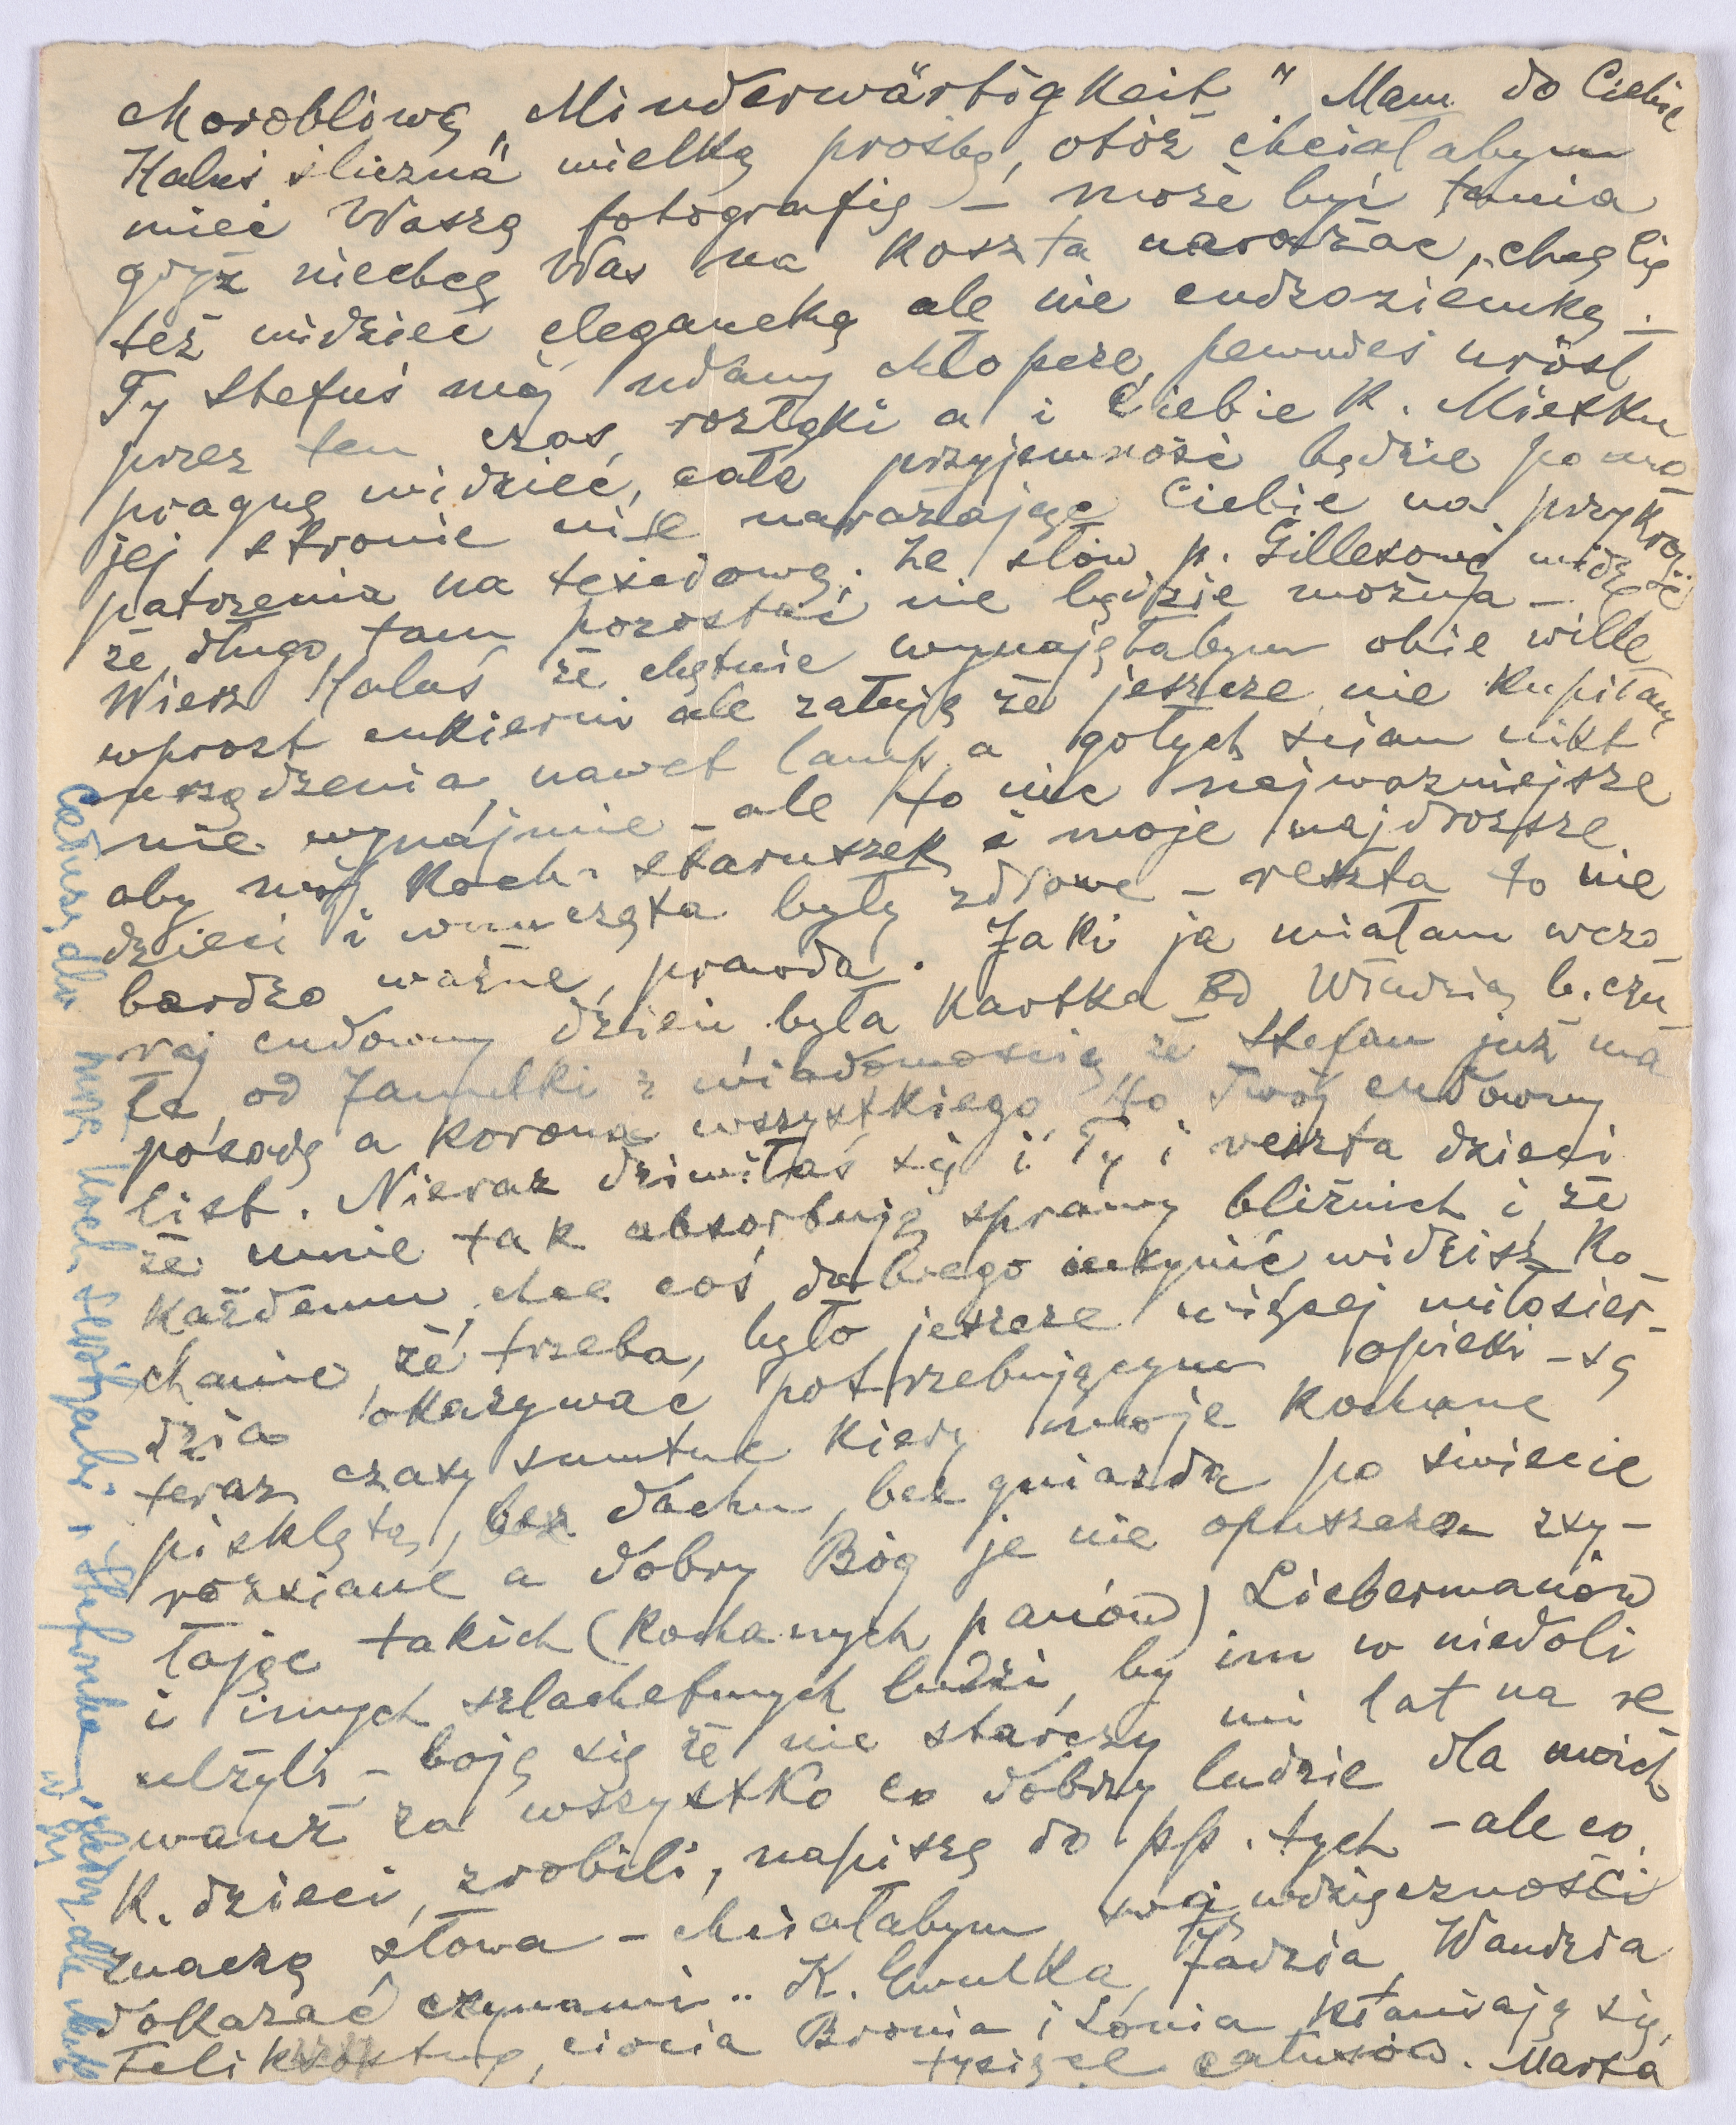 chorobliwą „Minderwärtigkeit" Mam do Ciebie
Haluś śliczna wielką prośbę, otóż chciałabym
mieć Waszą fotografię – może być tania
gdyż niechcę Was na koszta narażać, chcę Cię
też widzieć elegancką ale nie cudzoziemką –
Ty Stefuś mój udany chłopcze, pewnieś urósł
przez ten czas rozłąki a i Ciebie K. Mietku
pragnę widzieć, cała przyjemność będzie po mo
jej stronie nie narażając Ciebie na przykrość
patrzenia na teściową. Ze słów p. Gillesowej widzę
że długo tam pozostać nie będzie można –
Wiesz Haluś że chętnie wynajęłabym obie wille
wprost cukierni ale żałuję że jeszcze nie kupiłam
urządzenia nawet lamp a gołych ścian nikt
nie wynajmie – ale to nic najważniejsze
aby mój Koch. staruszek i moje najdroższe
dzieci i wnuczęta były zdrowe – reszta to nie
bardzo ważne, prawda. Jaki ja miałam wczo
raj cudowny dzień była kartka od Władzia b. czu
ła, od Jamulki z wiadomością że Stefan już ma
posadę a koroną wszystkiego to Twój cudowny
list. Nieraz dziwiłaś się i Ty i reszta dzieci
że mnie tak absorbują sprawy bliźnich i że
każdemu chcę coś dobrego uczynić widzisz Ko
chanie że trzeba, było jeszcze więcej miłosier-
dzia okazywać potrzebującym opieki – są
teraz czasy smutne kiedy moje kochane
pisklęta, bez dachu, bez gniazda po świecie
rozsiane a dobry Bóg je nie opuszcza zsy-
łając takich (kochanych panów) Liebermanów
i innych szlachetnych ludzi, by im w niedoli
ulżyli – boję się że nie starczy mi lat na re
wanż za wszystko co dobrzy ludzie dla moich
K. dzieci zrobili, napiszę do pp. tych – ale co
znaczą słowa – chciałabym swej wdzięczności
dokazać czynami.. K. Emulka, Jadzia, Wandzia
Feliks, ciocia Bronia i Lónia kłaniają się,
tysiąc całusów. Marta
Całuszę dla
i Stefonka